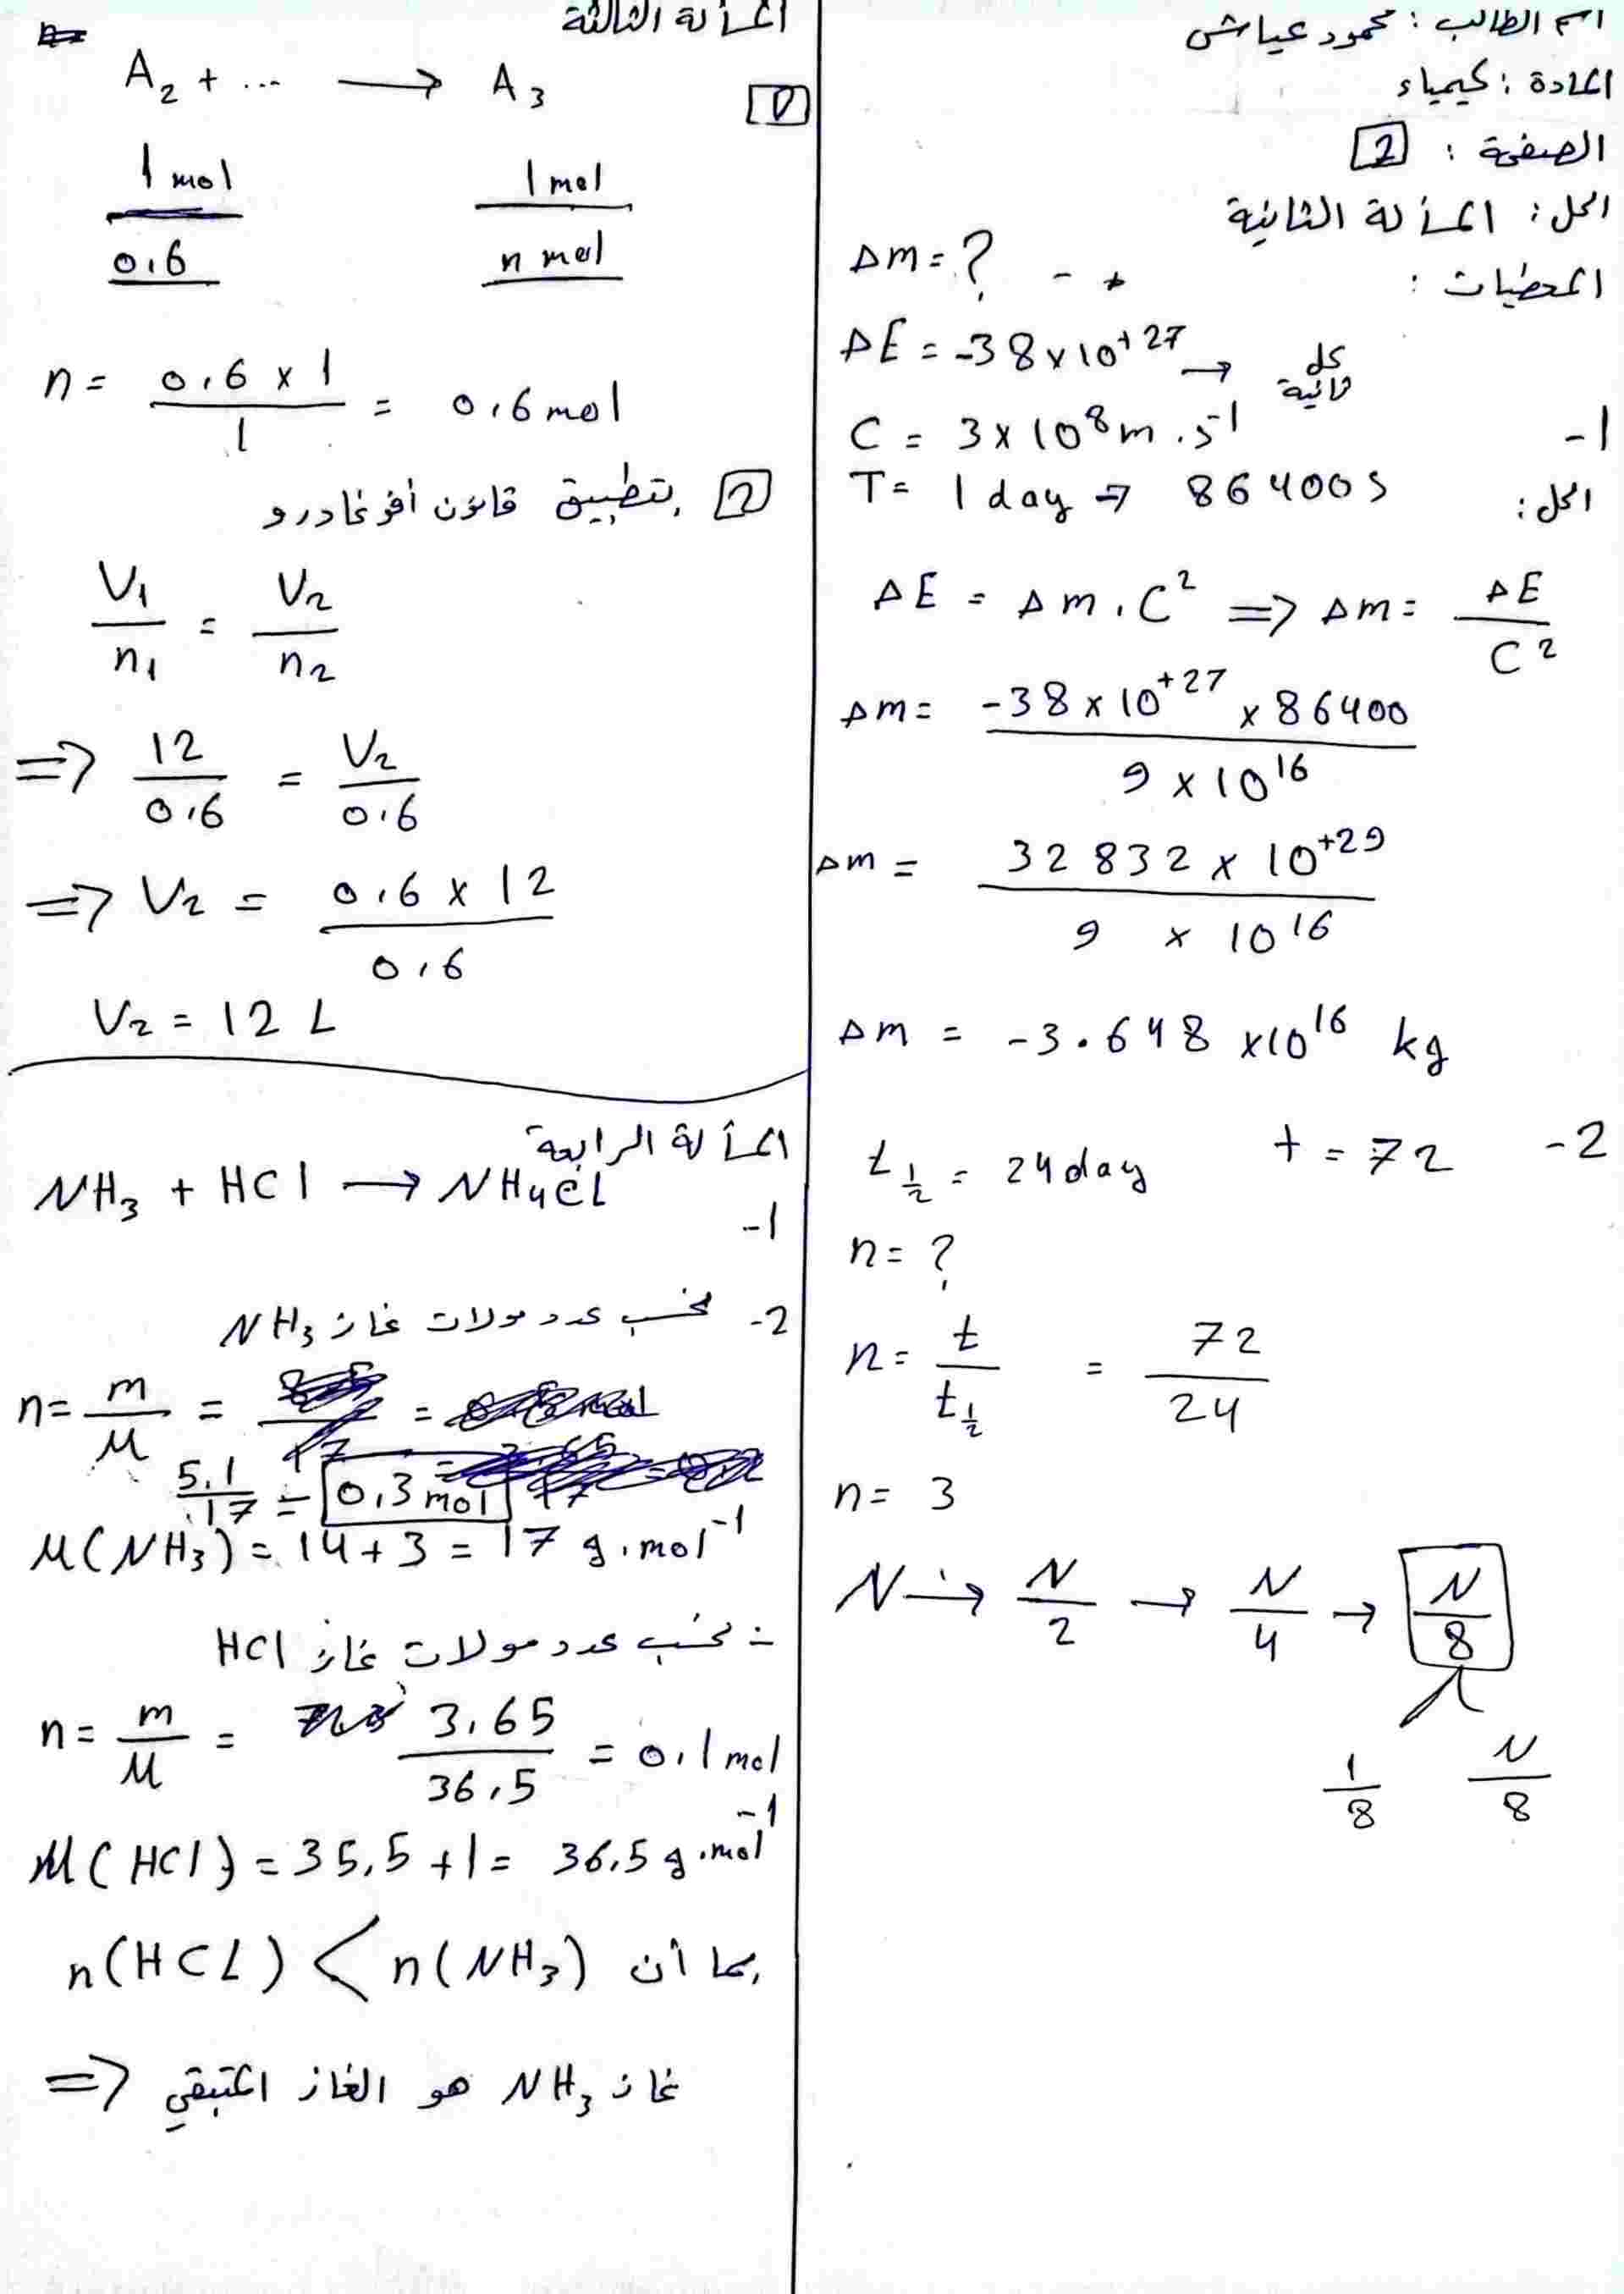 اسم الطالب : محمود عياش
المادة : كيمياء
الصفحة : 2
الحل : المسألة الثانية
المعطيات :
Δm = ? - +
ΔE = -38 × 10^+27 → كل ثانية
-1
C = 3 × 10^8 m . s^-1
T = 1 day → 86400 s
الحل :
ΔE = Δm . C^2 => Δm = ΔE / C^2
Δm = -38 × 10^+27 × 86400 / 9 × 10^16
Δm = 32832 × 10^+29 / 9 × 10^16
Δm = -3.648 × 10^16 kg
-2
t_1/2 = 24 day t = 72
n = ?
n = t / t_1/2 = 72 / 24
n = 3
N → N/2 → N/4 → N/8
1/8 N/8
المسألة الثالثة
1
A2 + ... → A3
1 mol 1 mol
0,6 n mol
n = 0,6 × 1 / 1 = 0,6 mol
2 بتطبيق قانون أفوغادرو
V1 / n1 = V2 / n2
=> 12 / 0,6 = V2 / 0,6
=> V2 = 0,6 × 12 / 0,6
V2 = 12 L
المسألة الرابعة
NH3 + HCl → NH4Cl
-1
-2 نحسب عدد مولات غاز NH3
n = m / M =
5,1 / 17 = 0,3 mol
M(NH3) = 14 + 3 = 17 g . mol^-1
- نحسب عدد مولات غاز HCl
n = m / M = 3,65 / 36,5 = 0,1 mol
M(HCl) = 35,5 + 1 = 36,5 g . mol^-1
بما أن n(HCL) < n(NH3)
=> غاز NH3 هو الغاز المتبقي